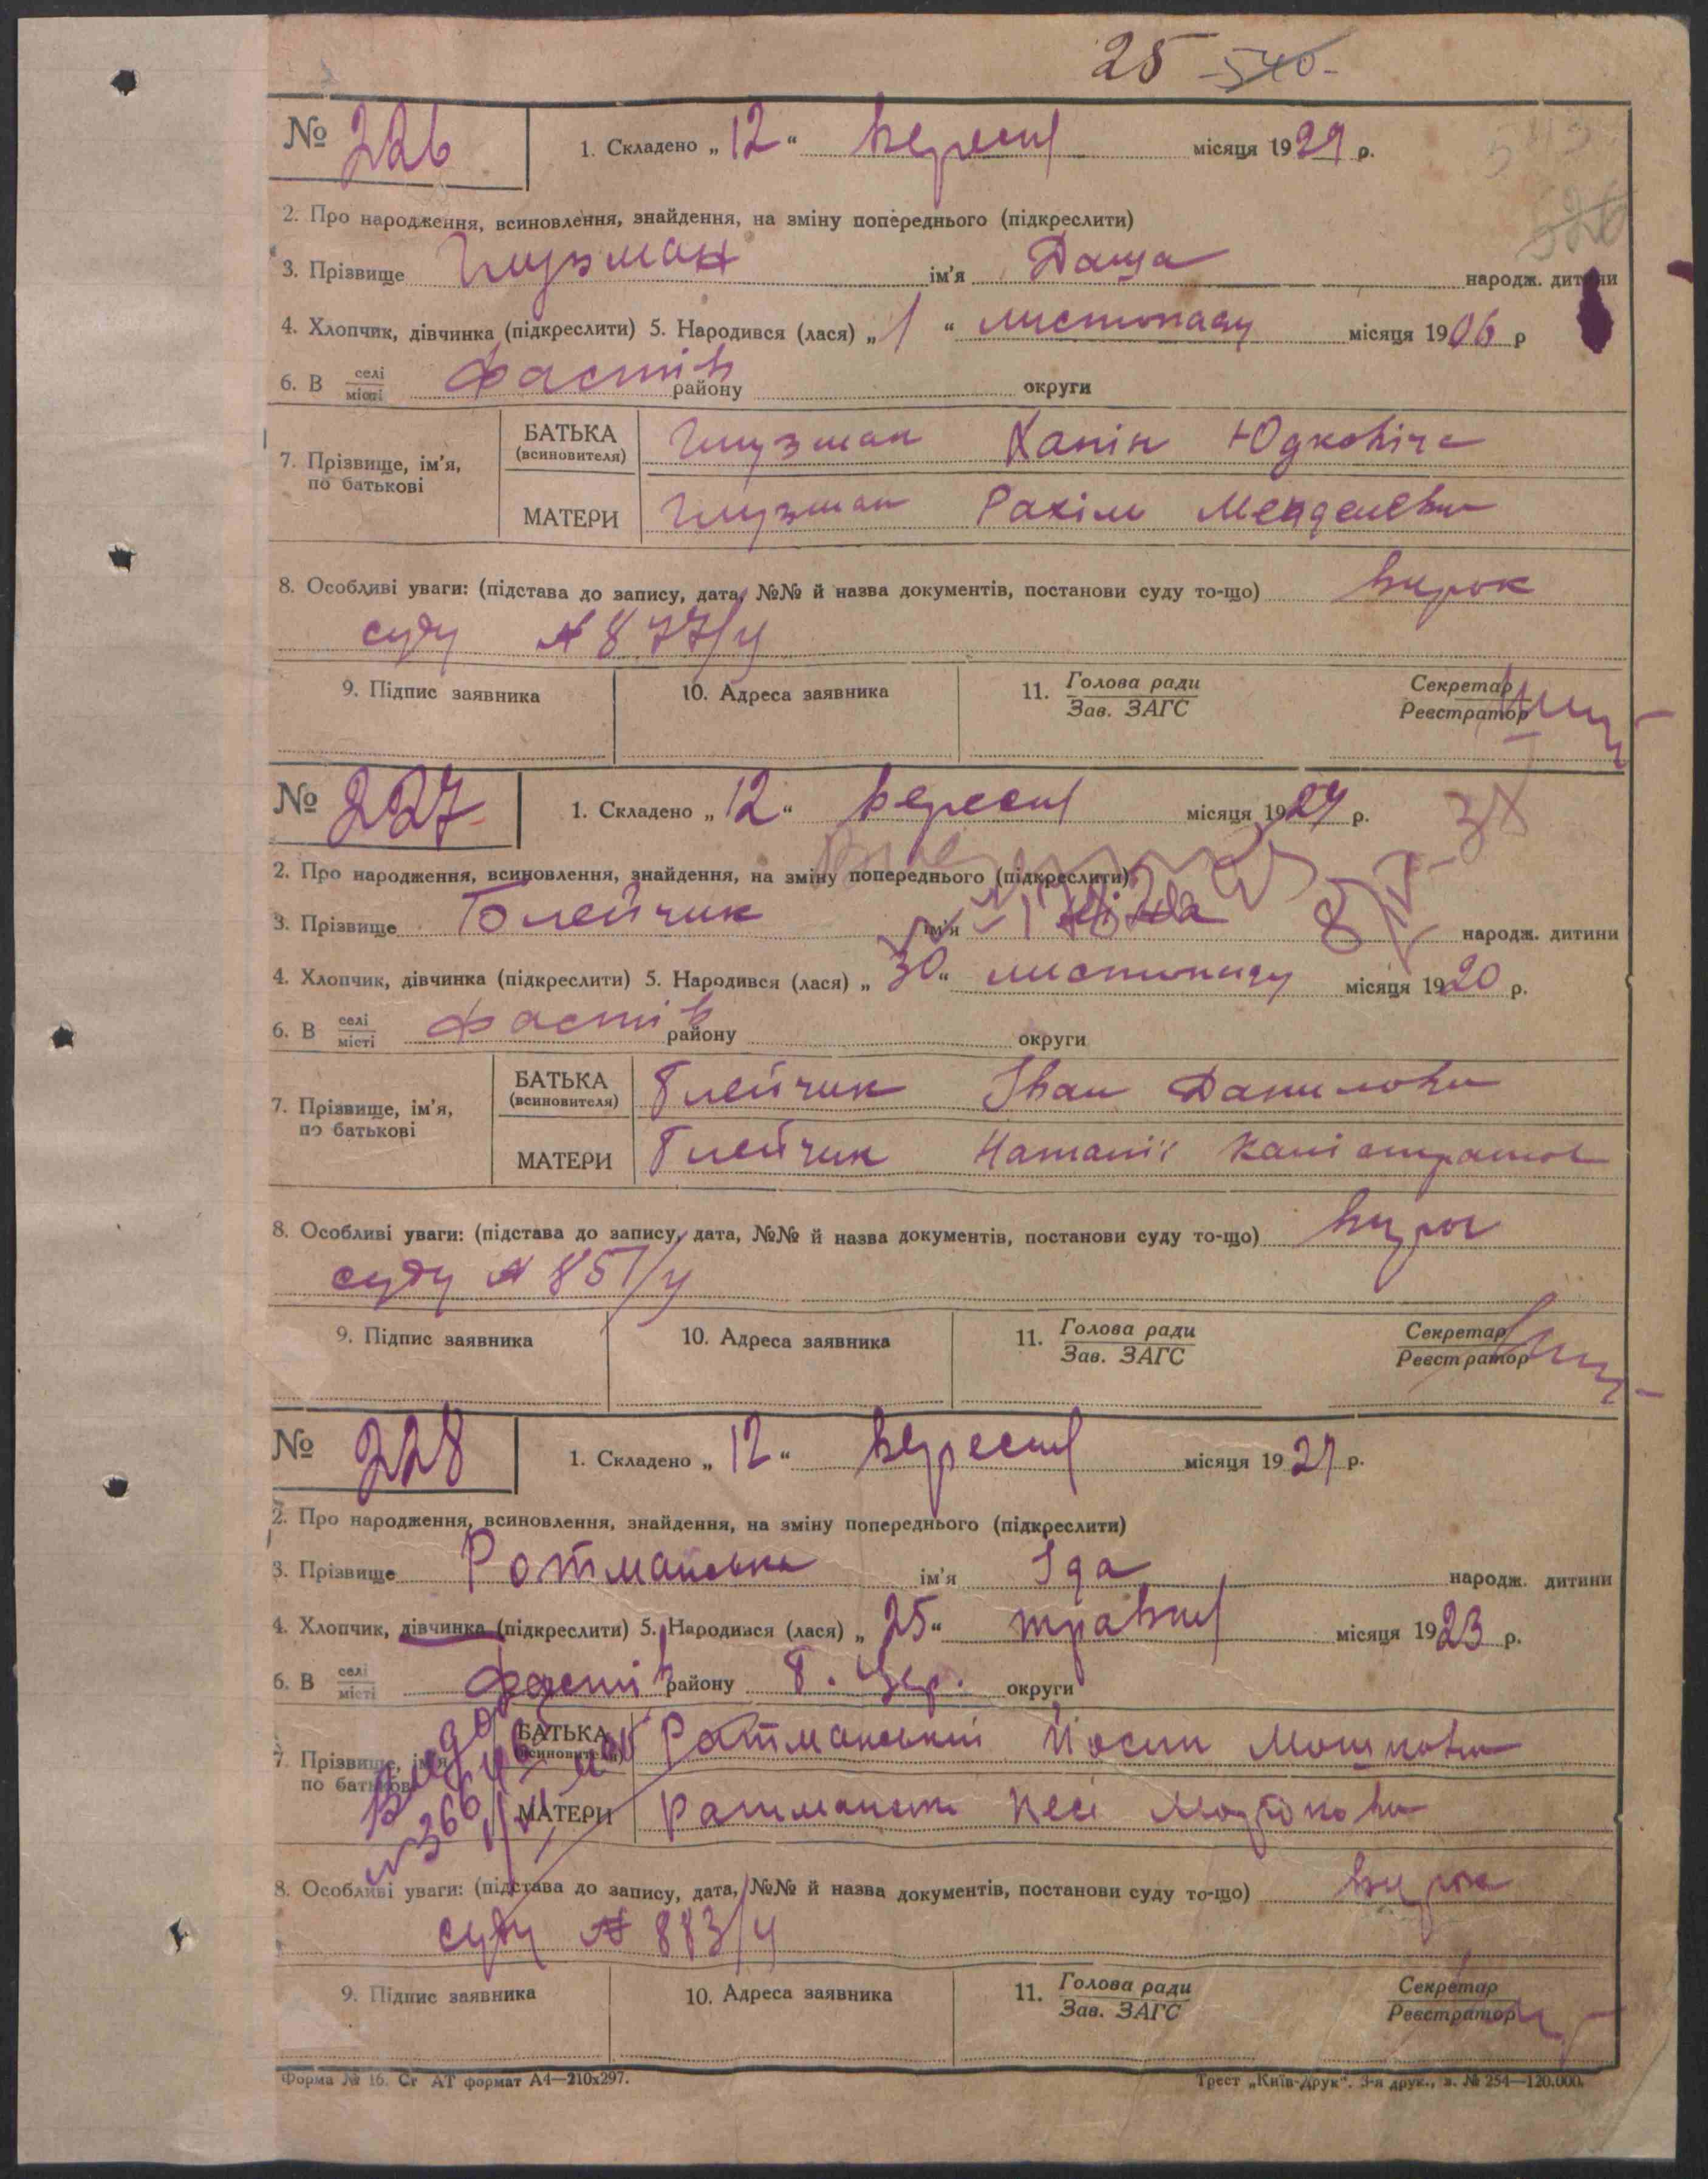 25 -540-
№ 226
1. Складено „ 12 “ вересня місяця 1929 р.
2. Про народження, всиновлення, знайдення, на зміну попереднього (підкреслити)
3. Прізвище Глузман ім'я Даша народж. дитини
4. Хлопчик, дівчинка (підкреслити) 5. Народився (лася) „ 1 “ листопаду місяця 1906 р
6. В селі місті Фастів району округи
7. Прізвище, ім'я, по батькові
БАТЬКА (всиновителя) Глузман Хапін Юдковіча
МАТЕРИ Глузман Рахіль Менделевн
8. Особливі уваги: (підстава до запису, дата, №№ й назва документів, постанови суду то-що) вирок
суду № 877/ч
9. Підпис заявника 10. Адреса заявника 11. Голова ради Зав. ЗАГС Секретар Реєстратор
№ 227
1. Складено „ 12 “ вересня місяця 1929 р.
2. Про народження, всиновлення, знайдення, на зміну попереднього (підкреслити)
3. Прізвище ім'я Ніна народж. дитини
4. Хлопчик, дівчинка (підкреслити) 5. Народився (лася) „ 30 “ листопаду місяця 1920 р.
6. В селі місті Фастів району округи
7. Прізвище, ім'я, по батькові
БАТЬКА (всиновителя) Глейчик Іван Данилови
МАТЕРИ Глейчик Наталії Калістратов
8. Особливі уваги: (підстава до запису, дата, №№ й назва документів, постанови суду то-що) вирок
суду № 851/ч
9. Підпис заявника 10. Адреса заявника 11. Голова ради Зав. ЗАГС Секретар Реєстратор
№ 228
1. Складено „ 12 “ вересня місяця 1929 р.
2. Про народження, всиновлення, знайдення, на зміну попереднього (підкреслити)
3. Прізвище Ротманська ім'я Іда народж. дитини
4. Хлопчик, дівчинка (підкреслити) 5. Народився (лася) „ 25 “ травня місяця 1923 р.
6. В селі місті Фастів району Б. Цер. округи
7. Прізвище, ім'я, по батькові
БАТЬКА (всиновителя) Ротманський Йосип Мошкови
МАТЕРИ Ротманська Песі
8. Особливі уваги: (підстава до запису, дата, №№ й назва документів, постанови суду то-що) вирок
суду № 883/ч
9. Підпис заявника 10. Адреса заявника 11. Голова ради Зав. ЗАГС Секретар Реєстратор
Форма № 16. Ст АТ формат А4—210х297. Трест „Київ-Друк“. 3-я друк., з. № 254—120.000.